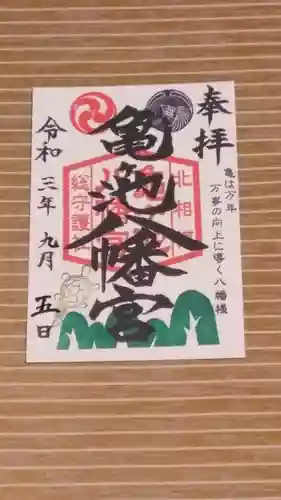 奉拝
亀は万年
万事の向上に導く八幡様
北相
亀ヶ池八幡宮
総守護
令和三年九月五日